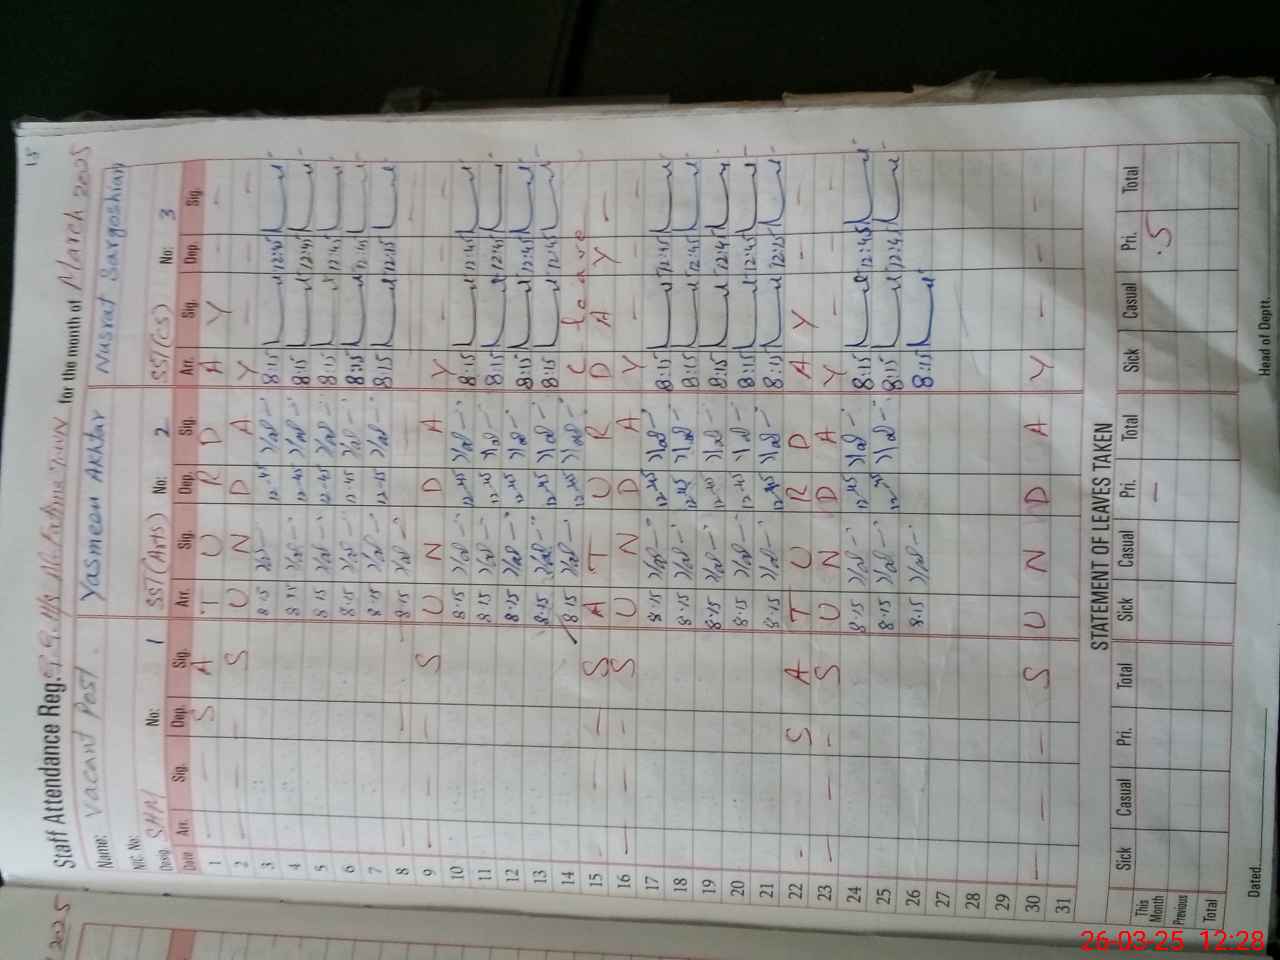 15
Staff Attendance Reg. for the month of March 2025
Name: Vacant Post. Yasmeen Akhtar Nusrat Sargoshian
NIC. No:
Desig. SHM No: 1 SST(AHS) No: 2 SST(CS) No: 3
Date Arr. Sig. Dep. Sig. Arr. Sig. Dep. Sig. Arr. Sig. Dep. Sig.
1 - - S A T U R D A Y - -
2 - - - S U N D A Y - - -
3 8:15 12:45 8:15 12:45
4 8:15 12:45 8:15 12:45
5 8:15 12:45 8:15 12:45
6 8:15 12:45 8:15 12:45
7 8:15 12:15 8:15 12:15
8 - - 8:15 - - -
9 - - - S U N D A Y - - -
10 8:15 12:45 8:15 12:45
11 8:15 12:45 8:15 12:45
12 8:15 12:45 8:15 12:45
13 8:15 12:45 8:15 12:45
14 8:15 12:45 C leave
15 - - - S A T U R D A Y -
16 - - - S U N D A Y - - -
17 8:15 12:45 8:15 12:45
18 8:15 12:45 8:15 12:45
19 8:15 12:45 8:15 12:45
20 8:15 12:45 8:15 12:45
21 8:15 12:15
22 - S A T U R D A Y - -
23 - - - S U N D A Y - - -
24 8:15 12:45 8:15 12:45
25 8:15 12:45 8:15 12:45
26 8:15 8:15
27
28
29
30 - - - S U N D A Y - - -
31
STATEMENT OF LEAVES TAKEN
Sick Casual Pri. Total Sick Casual Pri. Total Sick Casual Pri. Total
This Month - .5
Previous
Total
Dated Head of Deptt.
2025
26-03-25 12:28